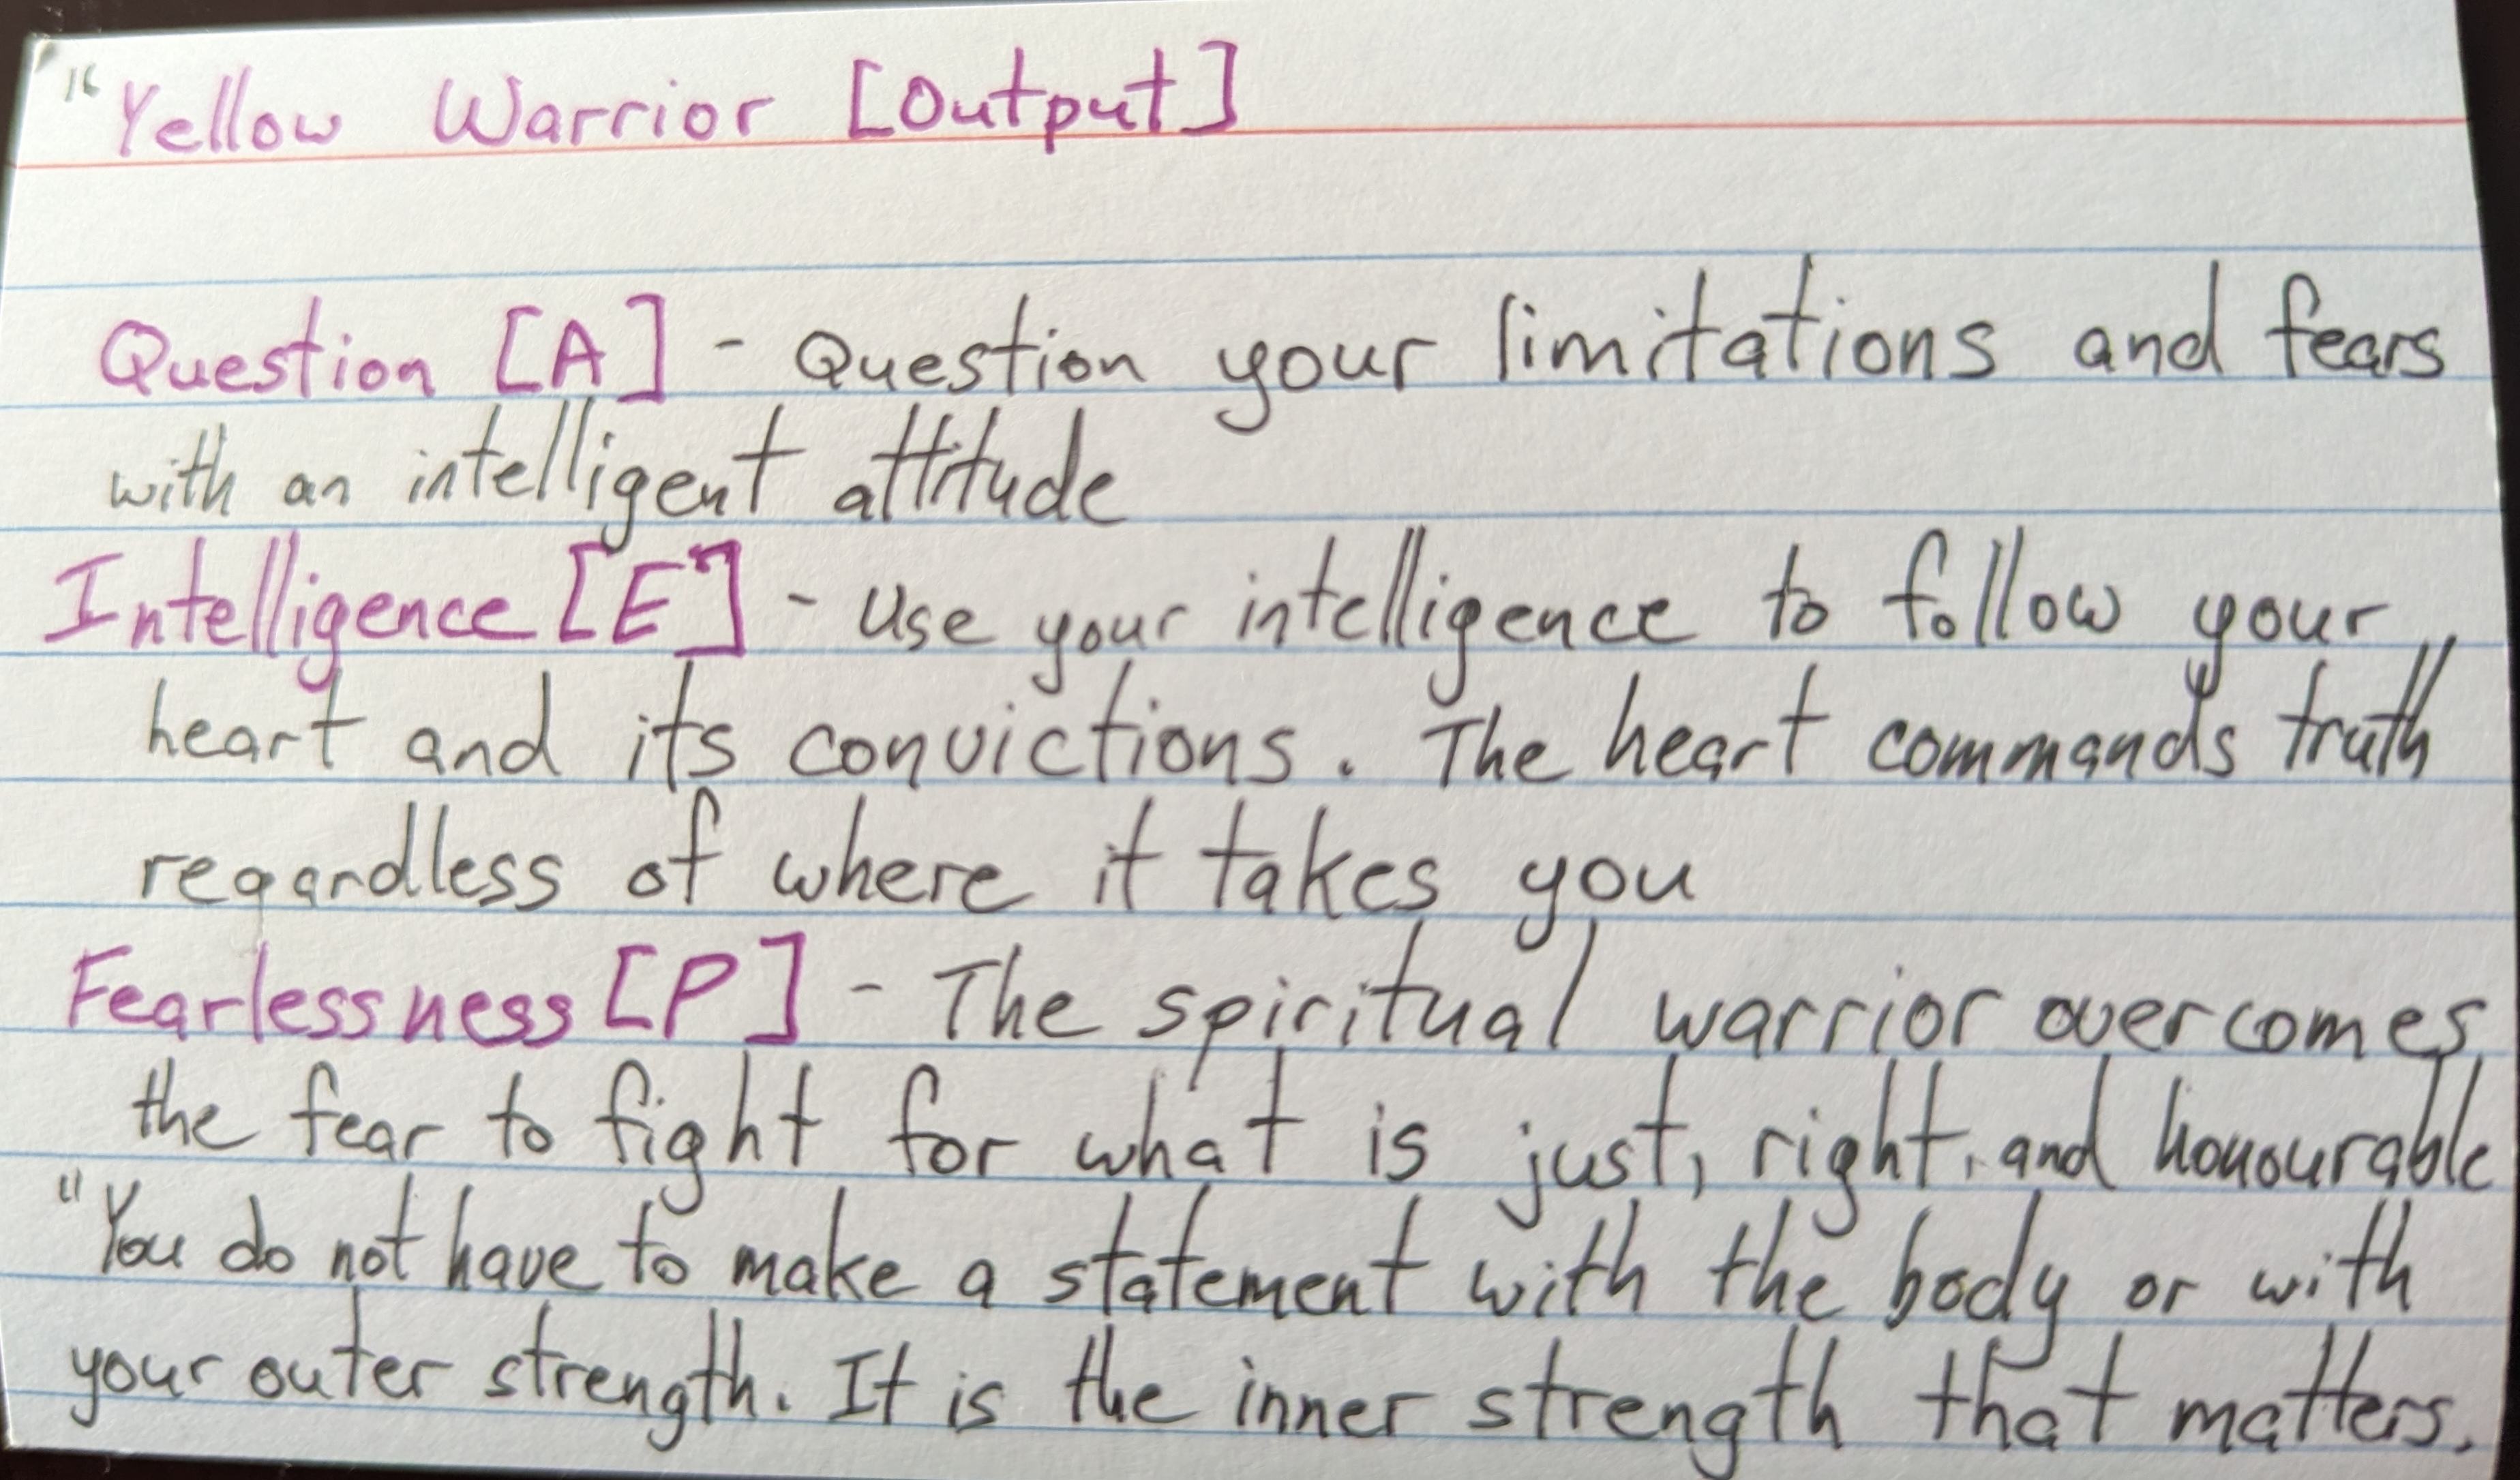 "Yellow Warrior [Output]
Question [A] - Question your limitations and fears
with an intelligent attitude
Intelligence [E] - Use your intelligence to follow your
heart and its convictions. The heart commands truth
regardless of where it takes you
Fearlessness [P] - The spiritual warrior overcomes
the fear to fight for what is just, right, and honourable
"You do not have to make a statement with the body or with
your outer strength. It is the inner strength that matters.